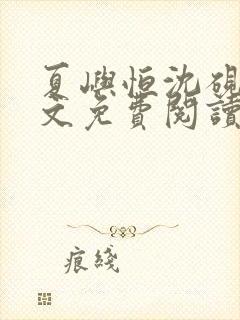 夏嶼恒沈硯
文免費閱讀
痕綫